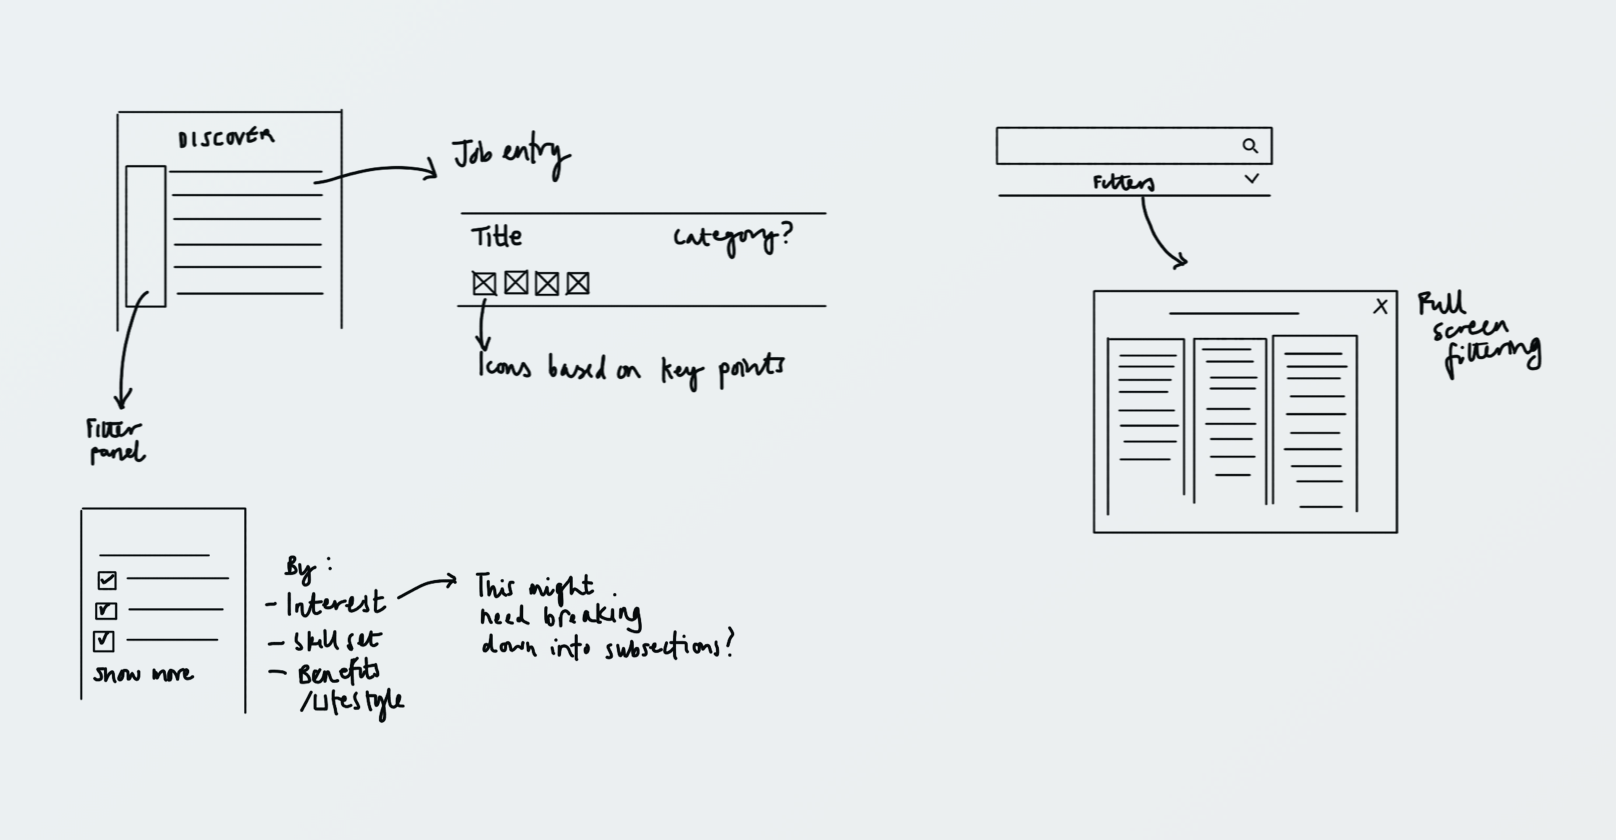 DISCOVER
Job entry
Title
Category?
Icons based on key points
Filter
panel
Show more
By:
- Interest
- Skill set
- Benefits
/Lifestyle
This might
need breaking
down into subsections?
Filters
X
Full
screen
filtering